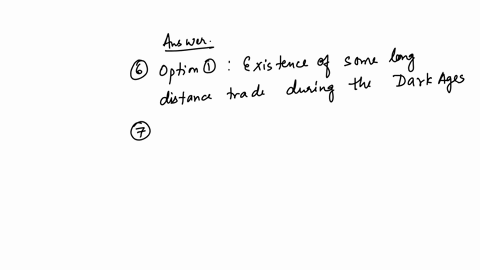 Answer.
⑥ Option ① : Existence of some long
distance trade during the Dark Ages
⑦